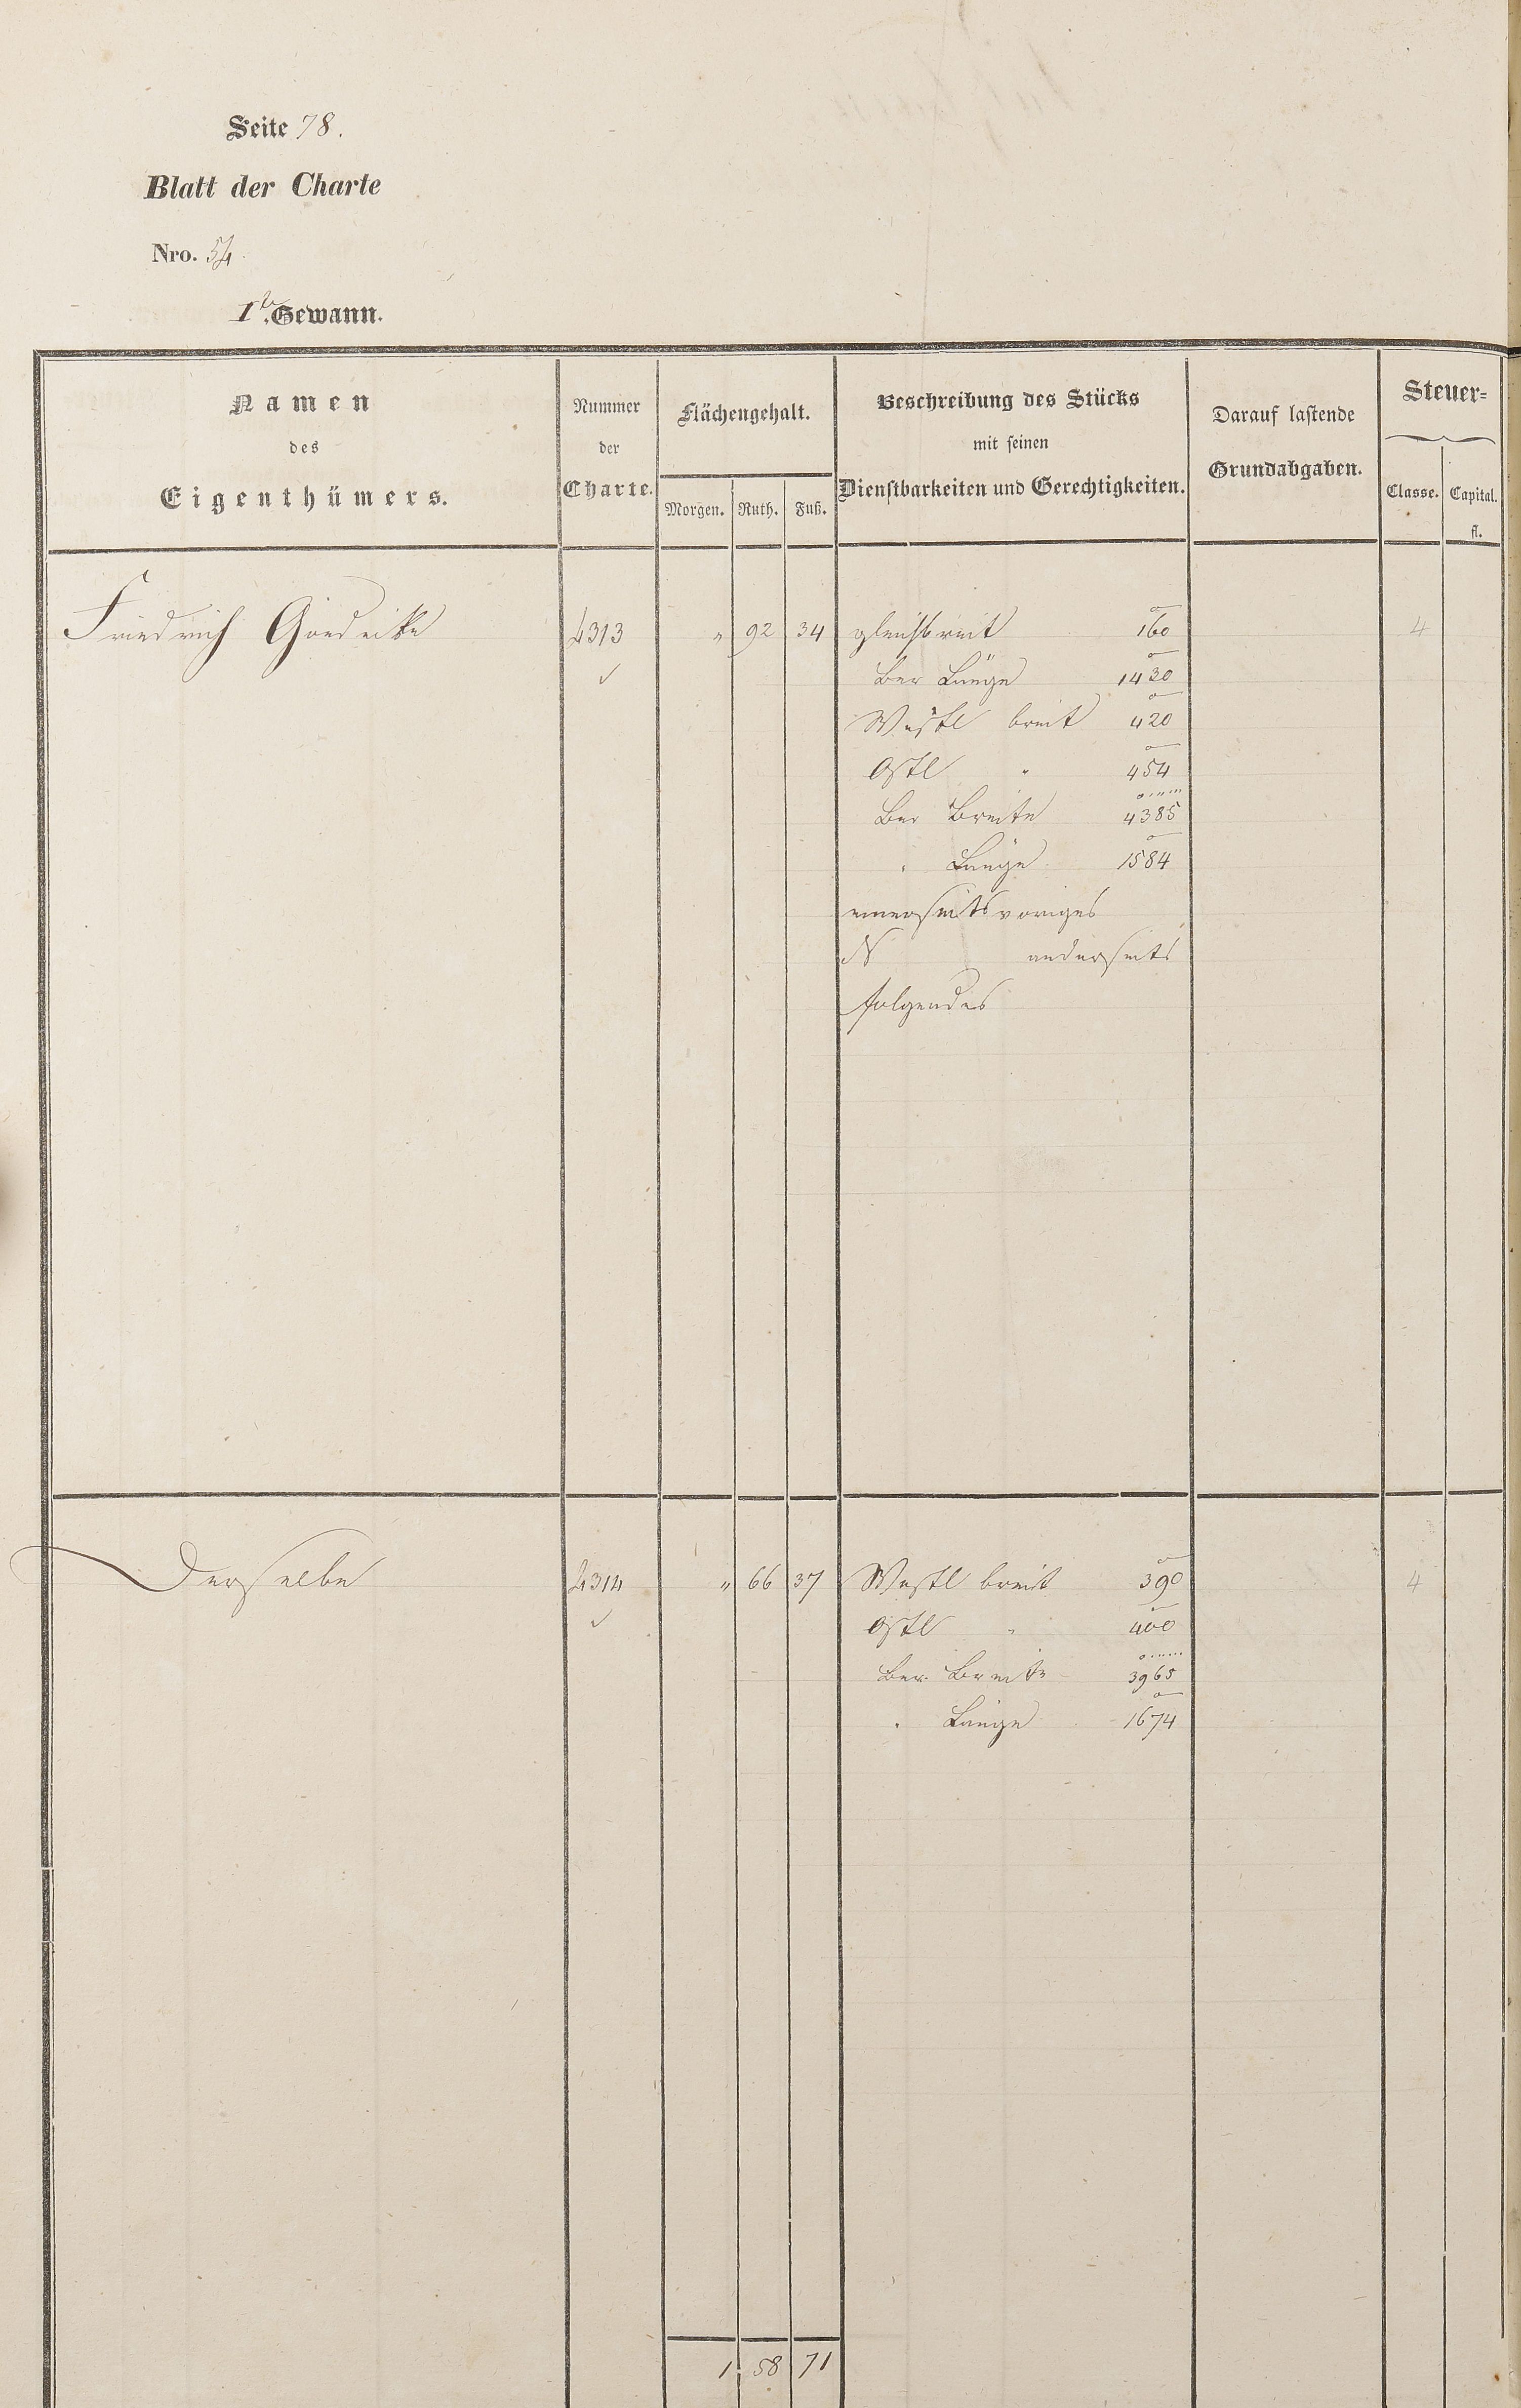 Seite 78.
Blatt der Charte
Nro. 54
1te Gewann.
Namen
des
Eigenthümers.
Nummer
der
Charte.
Flächengehalt.
Morgen. Ruth. Fuß.
Beschreibung des Stücks
mit seinen
Dienstbarkeiten und Gerechtigkeiten.
Darauf lastende
Grundabgaben.
Steuer-
Classe. Capital.
fl.
Friedrich Goedecke 4313 " 92 34 gleichbreit 160 4
Ber Länge 1430
Westl breit 420
Ostl " 454
Ber Breite 4385
" Länge 1584
einerseits voriges
N anderseits
folgendes
Derselbe 4314 " 66 37 Westl breit 390 4
Ostl " 400
Ber. Breite 3965
" Länge 1674
1. 58 71